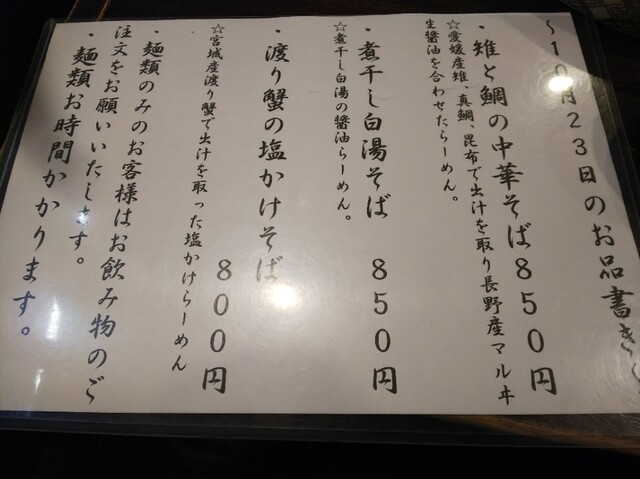 ～10月23日のお品書き～
・雉と鯛の中華そば850円
☆愛媛産雉、真鯛、昆布で出汁を取り長野産マルヰ
生醤油を合わせたらーめん。
・煮干し白湯そば 850円
☆煮干し白湯の醤油らーめん。
・渡り蟹の塩かけそば
800円
☆宮城産渡り蟹で出汁を取った塩かけらーめん
・麺類のみのお客様はお飲み物のご
注文をお願いいたします。
・麺類お時間かかります。